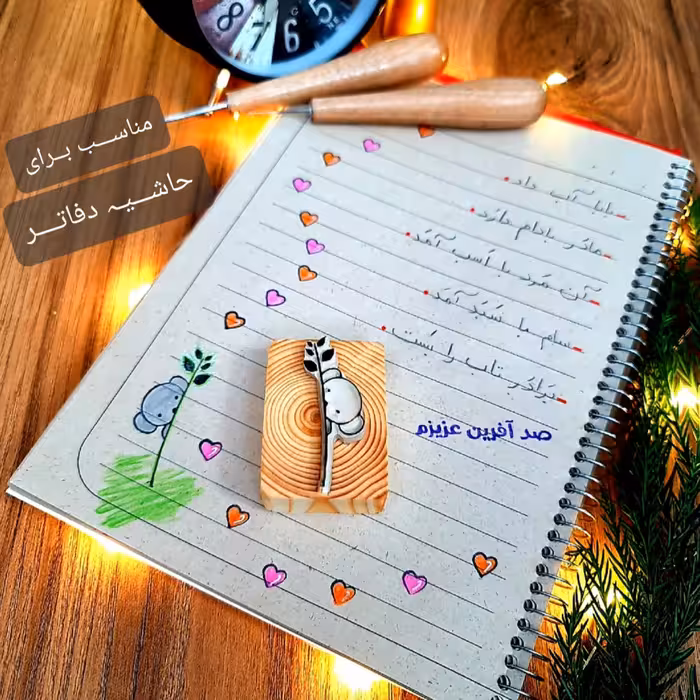 مناسب برای
حاشیه دفاتر
بابا آب داد.
مادر بادام دارد.
آن مرد با اسب آمد.
سام با سبد آمد.
برادر تاب را بست.
صد آفرین عزیزم
8
7
6
5